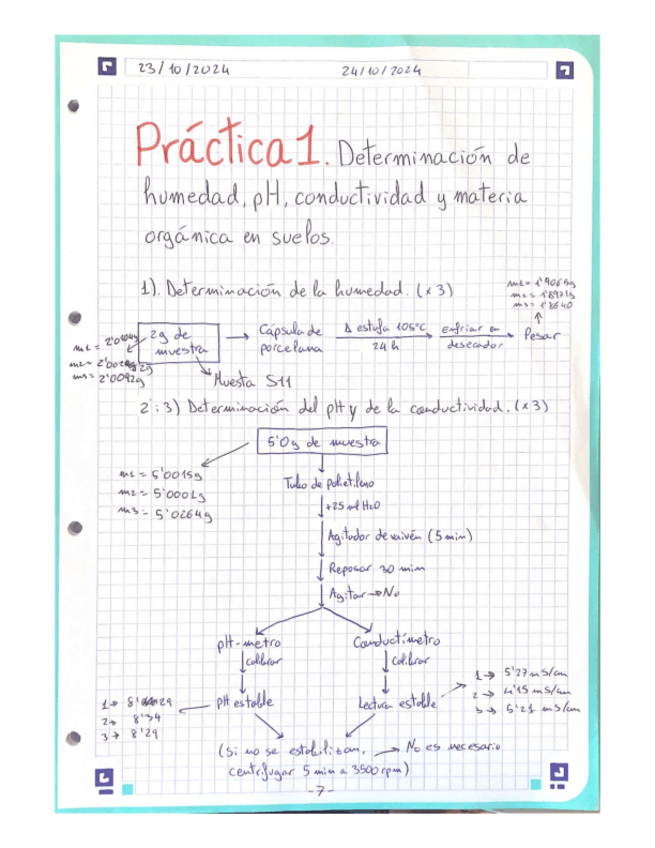 23/10/2024 24/10/2024
Práctica 1. Determinación de
humedad, pH, conductividad y materia
orgánica en suelos.
1). Determinación de la humedad. (x3)
m3 = 1'8640
2g de muestra → Cápsula de porcelana Δ estufa 105ºC 24 h Enfriar en desecador → Pesar
m3 = 2'0092g
Muesta S11
2 : 3) Determinación del pH y de la conductividad. (x3)
5'0g de muestra
m1 = 5'0015g
m2 = 5'0001g
m3 = 5'0264g
Tubo de polietileno
+25 ml H2O
Agitador de vaivén (5 min)
Reposar 30 min
Agitar → No
pH-metro Conductímetro
calibrar calibrar
pH estable Lectura estable
1→ 8'29
2→ 8'34
3→ 8'29
1→ 5'27 mS/cm
2→ 4'15 mS/cm
3→ 5'21 mS/cm
(si no se estabilizan, → No es necesario
centrifugar 5 min a 3500 rpm)
-7-